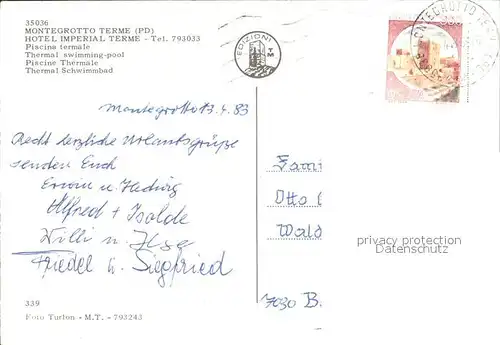 35036
MONTEGROTTO TERME (PD)
HOTEL IMPERIAL TERME - Tel. 793033
Piscina termale
Thermal swimming-pool
Piscine Thermale
Thermal Schwimmbad
EDIZIONI
TM
MONTEGROTTO TERME
Montegrotto 13.4.83
Recht herzliche Urlaubsgrüße
senden Euch
Erwin u. Hedwig
Alfred + Isolde
Willi u. Ilse
Friedel u. Siegfried
Fami
Otto
Wald
7030 B.
privacy protection
Datenschutz
339
Foto Turlon - M.T. - 793243